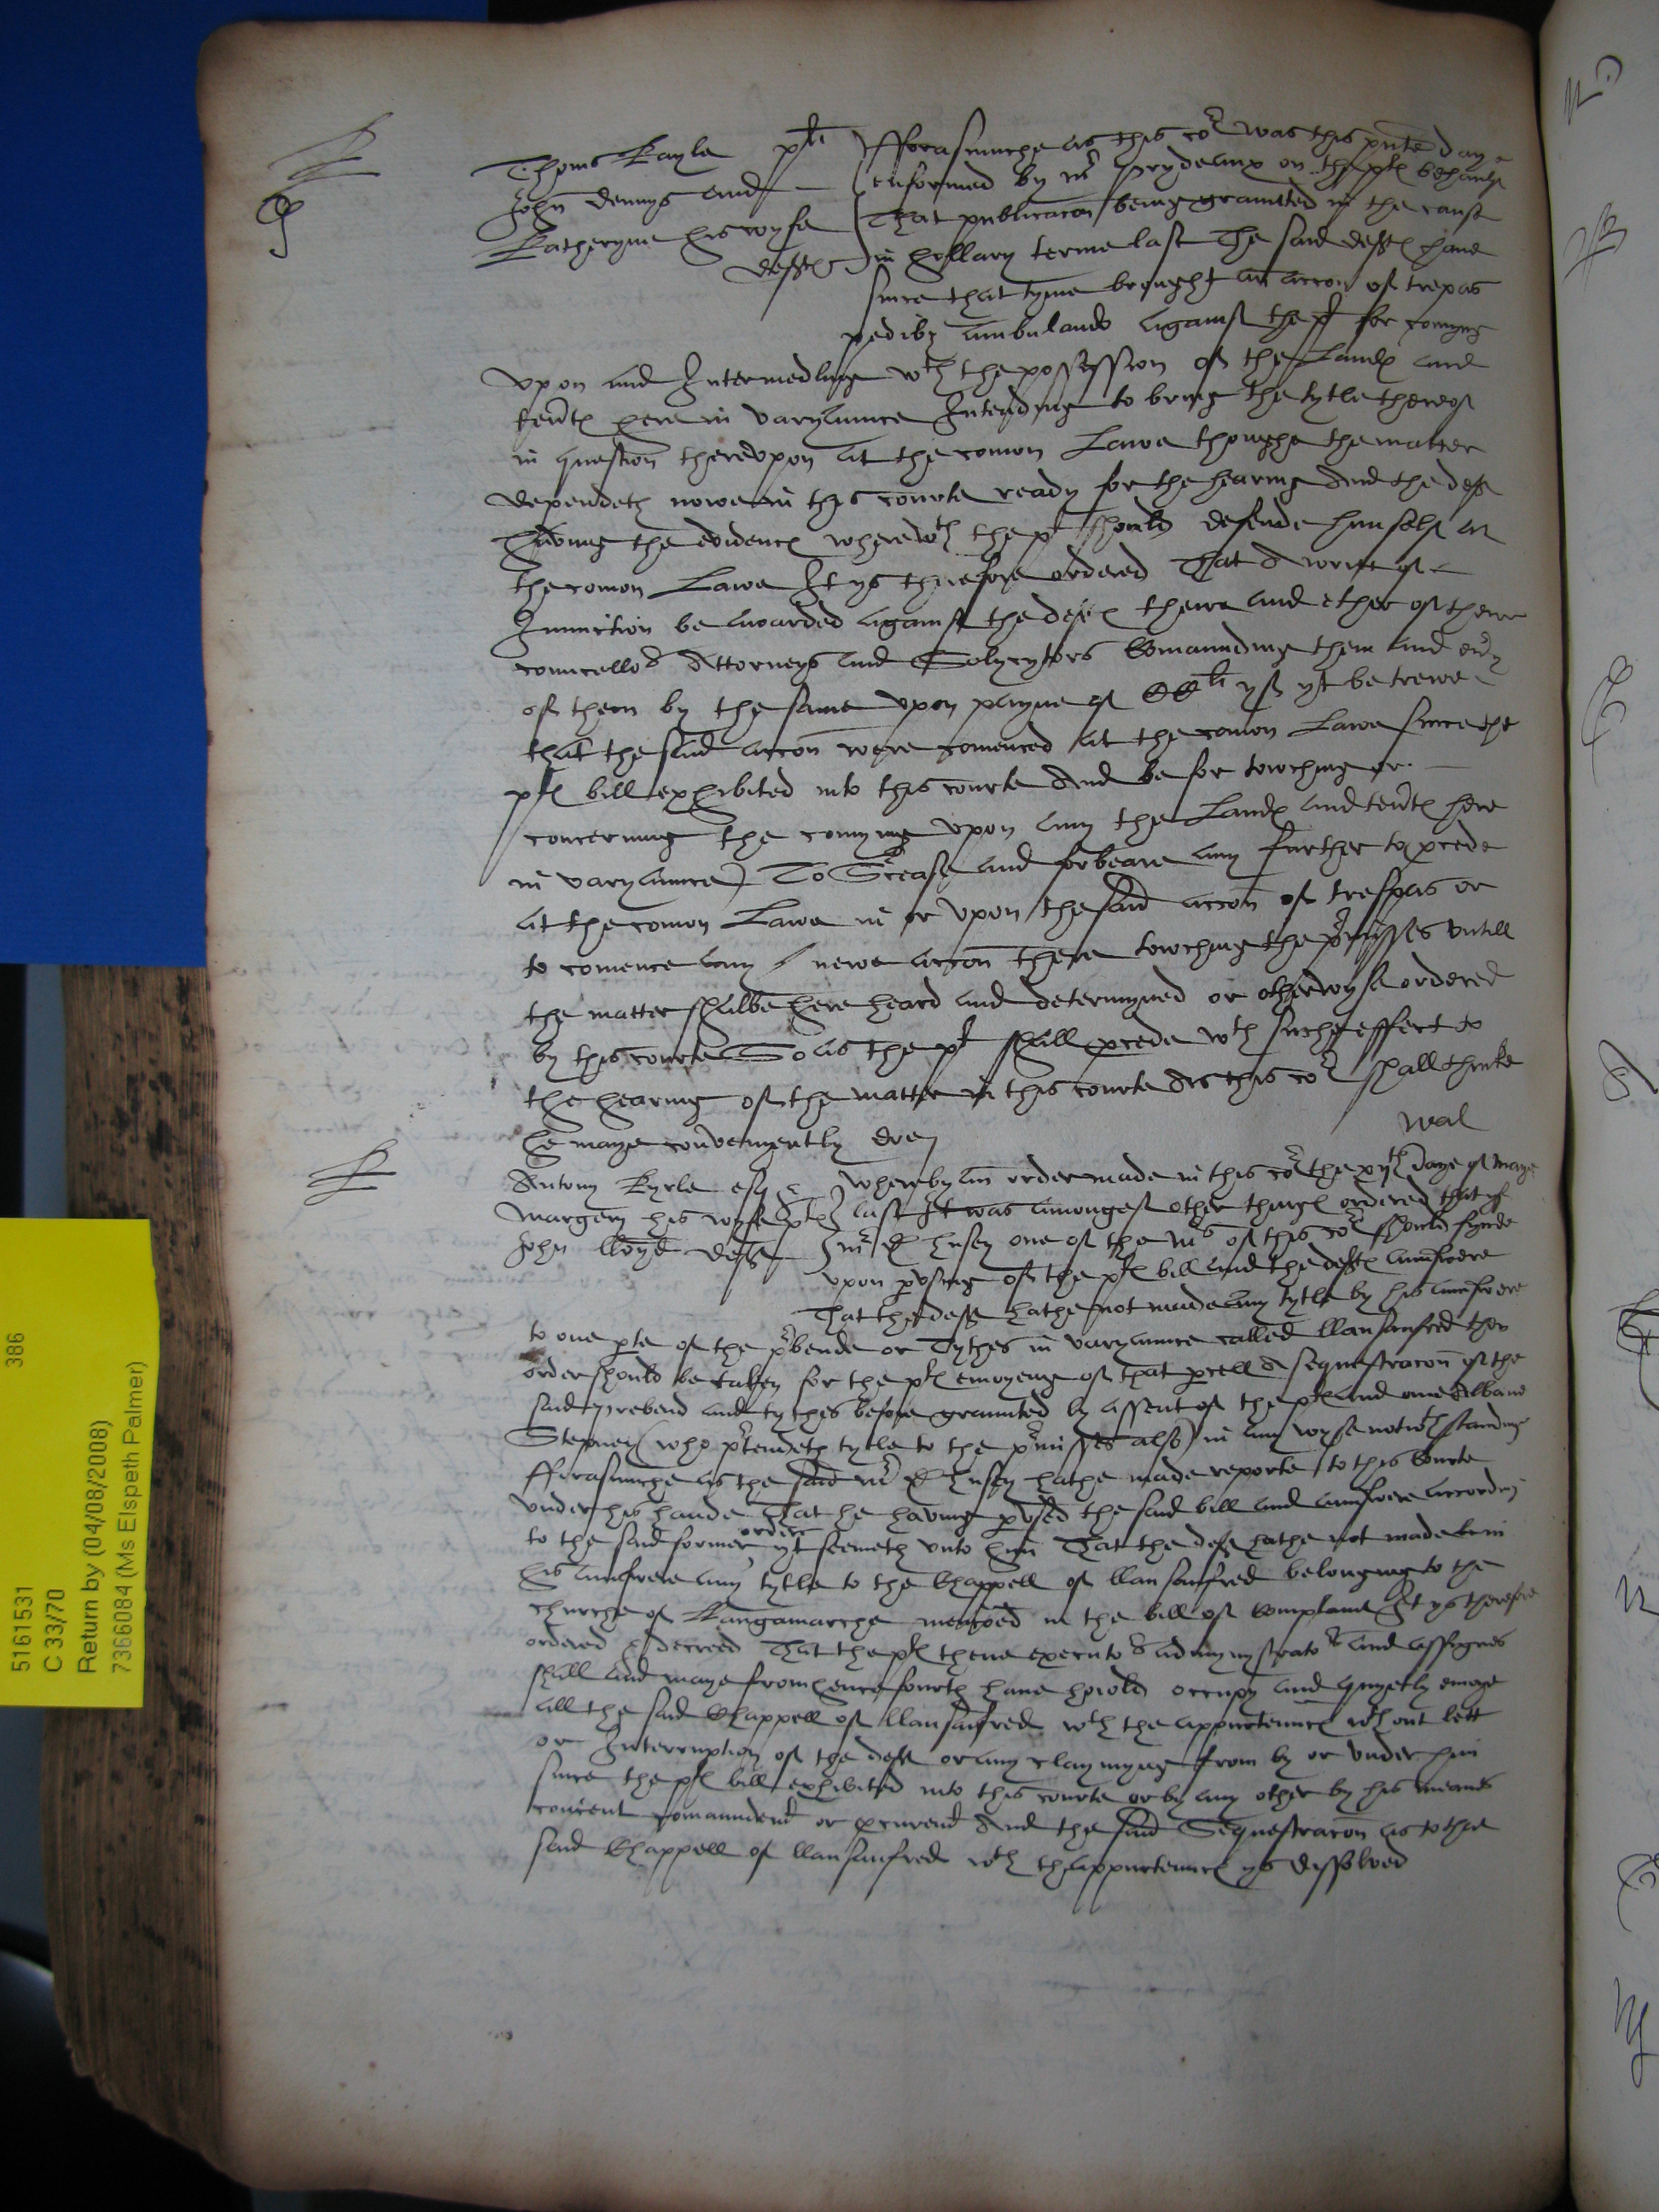 Thoms Kayle plt
John Dennys and
Katheryne his wyfe
deftes
fforasmuche as this cort was this pnte daye
enformed by mr prydeaux on the ptes behaulf
That publicacon being graunted in the cause
in hyllary terme last The said deftes have
since that tyme brought an accon of trepas
pedibz ambulando against the pt for comyng
vpon and Intermedling wth the possession of the Landes and
tentes here in varyaunce Intending to bring the tytle therof
in question therevpon at the comon Lawe thoughe the matter
dependeth nowe in this courte ready for the hearing And the deft
having the evidences wherewth the pt should defende himself at
the comon Lawe It ys therefore ordered That A writt of
Iniunction be awarded against the deftes theire and ether of theire
councellors Attorneys and Solycytors Comaunding them and evry
of them by the same vpon payne of CCli yf yt be trewe
that the said accon were comenced at the comon Lawe since the
ptes bill exhibited into this courte And be for towching or
concerning the comyng vpon any the Landes and tentes here
in varyaunce) To Scease and forbeare any further to pcede
at the comon Lawe in or vpon the said accon of trespas or
to comence any newe accon there towching the prmisses vntill
the matter shalbe here heard and determyned or otherwyse ordered
by this courte So as the pt shall pcede wth suche effect to
the hearing of the matter in this courte As this cort shall thinke
he maye convenyently doe
wal
Antony Kyrle esq
Margery his wyfe ptes
John lloyd deft
Where by an order made in this cort the xijth Daye of Maye
last It was amongest other thinges ordered that yf
mr D Husey one of the mrs of this cort should fynde
vpon pvsing of the ptes bill and the deftes aunswere
That the deft hathe not made any tytle by his aunswere
to one pte of the prbende or Tythes in varyaunce called llansanfred then
order should be taken for the ptes enioyeng of that pcell A sequestracon of the
said prebend and tythes before graunted by assent of the ptes and one Albane
Stepney (who prtendeth tytle to the prmisses also) in any wyse notwthstanding
fforasmuche as the said mr D Husey hathe made reporte to this Courte
vnder his hande That he having pvsed the said bill and aunswere according
to the said former order yt seemeth vnto him That the deft hathe not made in
his aunswere any tytle to the Chappell of llansanfred belonging to the
churche of Langamarche mencoed in the bill of Complaint It ys therefore
ordered & decreed That the ptes theire executors admynystrators and assignes
shall and maye from hencefourth have hould occupy and quyetly enioye
all the said Chappell of llansanfred wth the appurtennces wthout lett
or Interruption of the deft or any clayming from by or vnder him
since the ptes bill exhibited into this courte or by any other by his meanes
concent comaundemt or pcuremt And the said Sequestracon as to the
said Chappell of llansanfred wth thappurtennces ys dissolved
386
5161531
C 33/70
Return by (04/08/2008)
73666084 (Ms Elspeth Palmer)